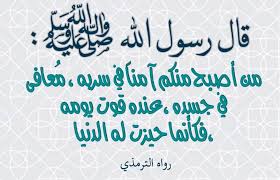 قال رسول الله ﷺ :
من أصبح منكم آمناً في سربه ، مُعافى
في جسده ، عنده قوت يومه
، فكأنما حيزت له الدنيا
رواه الترمذي